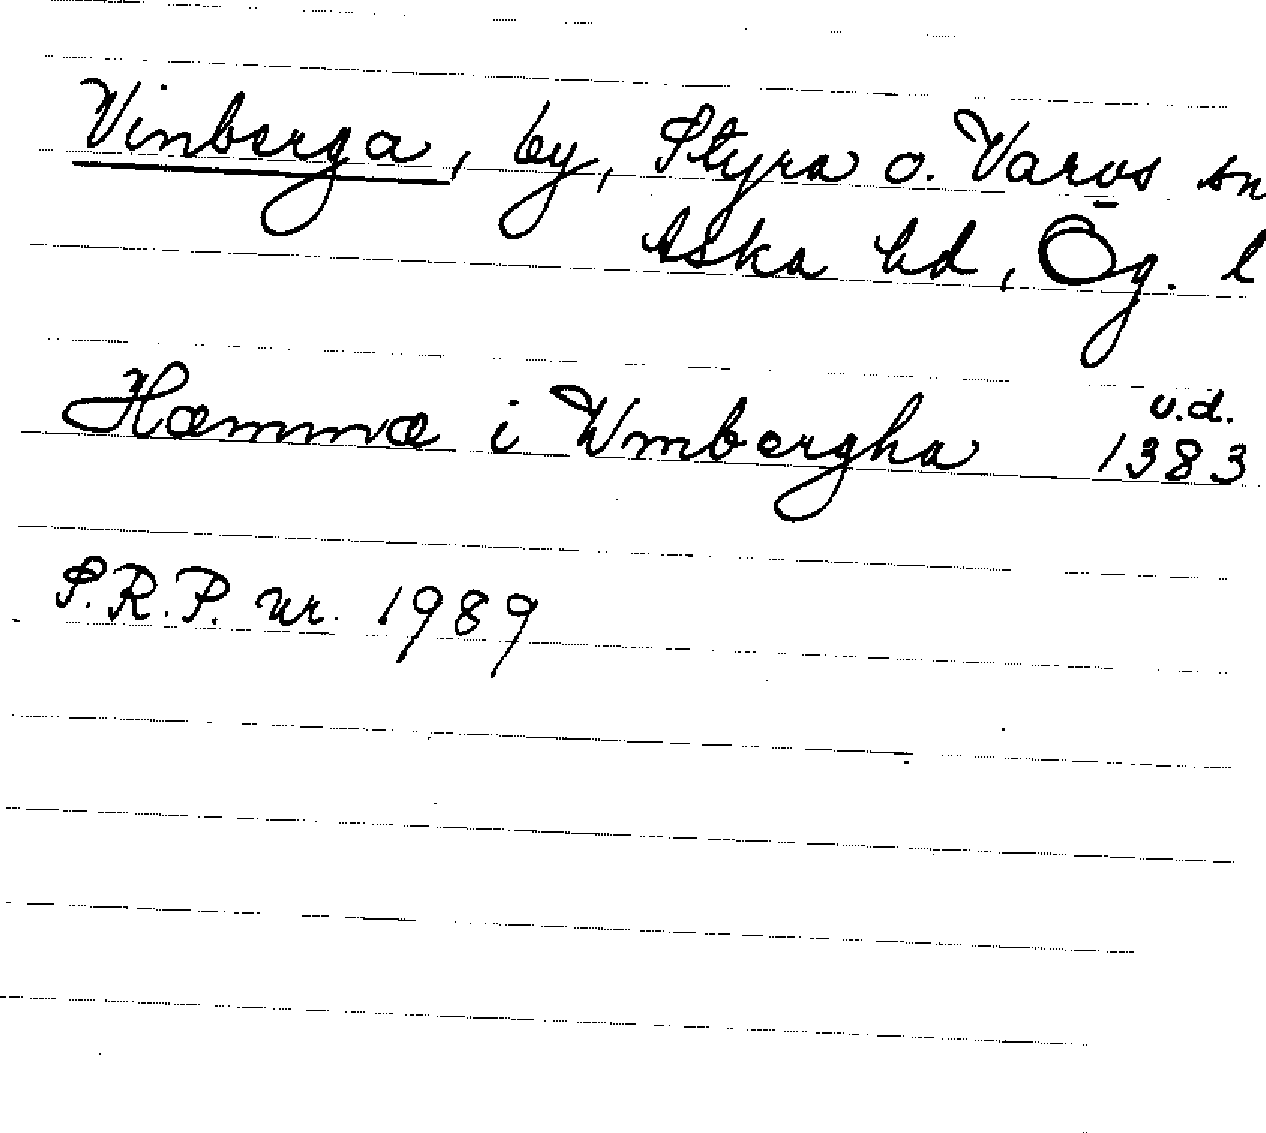 Vinberga, by, Styra o. Varvs sn
Aska hd, Ög. l
Hæmmæ i Wmbergha u.d. 1383
S.R.P. nr. 1989